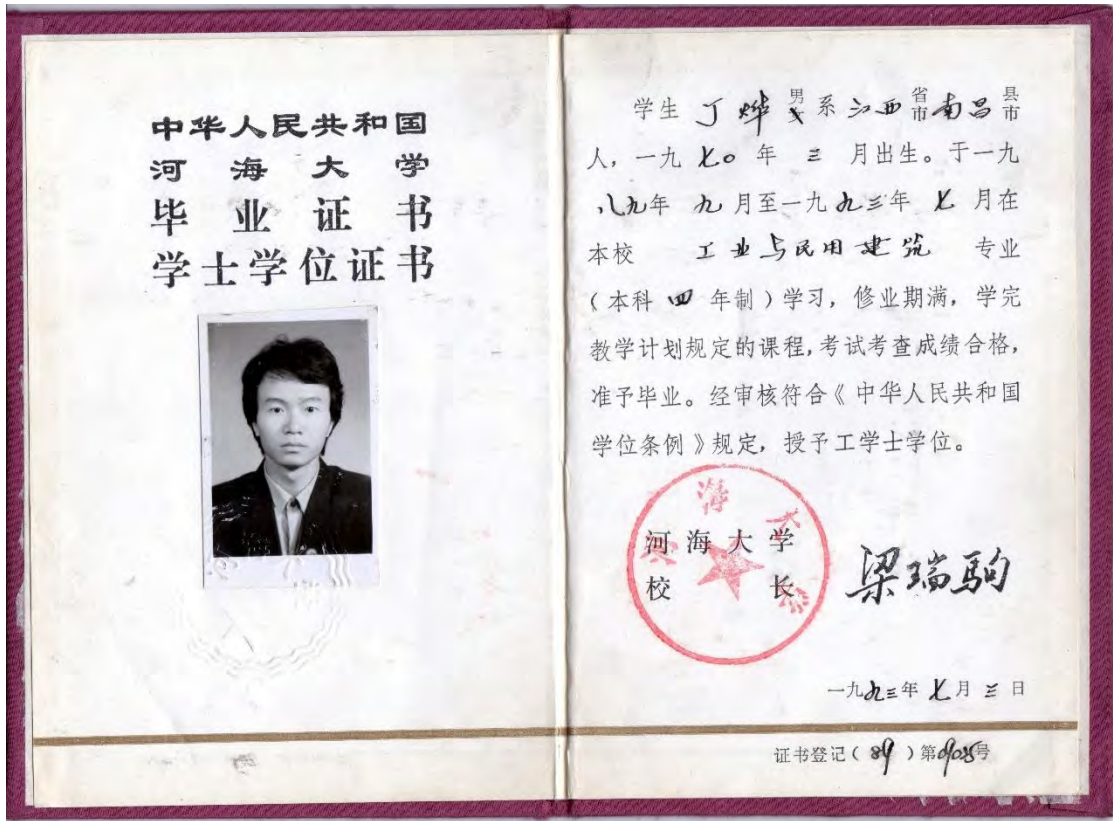 中华人民共和国
河海大学
毕业证书
学士学位证书
学生 丁烨 男女 系 江西 省市 南昌 县市
人，一九七〇年 三 月出生。于一九
八九年 九 月至一九九三年 七 月在
本校 工业与民用建筑 专业
（本科 四 年制）学习，修业期满，学完
教学计划规定的课程，考试考查成绩合格，
准予毕业。经审核符合《中华人民共和国
学位条例》规定，授予工学士学位。
河海大学
河海大学
校长 梁瑞驹
一九九三年 七 月 三 日
证书登记（89）第号